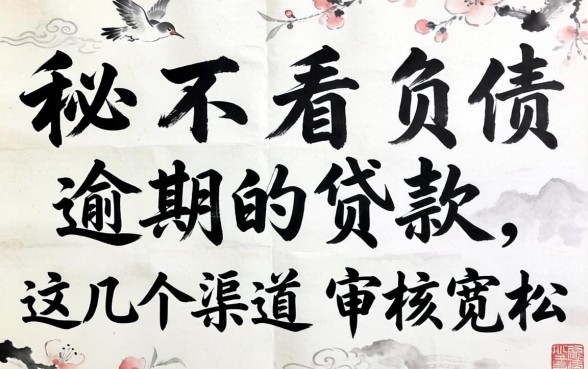 秘不看负债
逾期的贷款，
这几个渠道 审核宽松